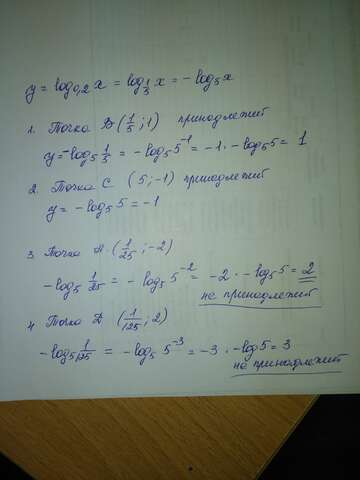 y = log₀,₂ x = log_{1/5} x = - log₅ x
1. Точка B (1/5 ; 1) принодлежит
y = -log₅ 1/5 = - log₅ 5⁻¹ = -1 · - log₅ 5 = 1
2. Точка C (5 ; -1) принодлежит
y = - log₅ 5 = -1
3. Точка А. (1/25 ; -2)
- log₅ 1/25 = - log₅ 5⁻² = -2 · - log₅ 5 = 2
не принодлежит
4. Точка D (1/125 ; 2)
- log₅ 1/125 = - log₅ 5⁻³ = -3 · - log 5 = 3
не принодлежит